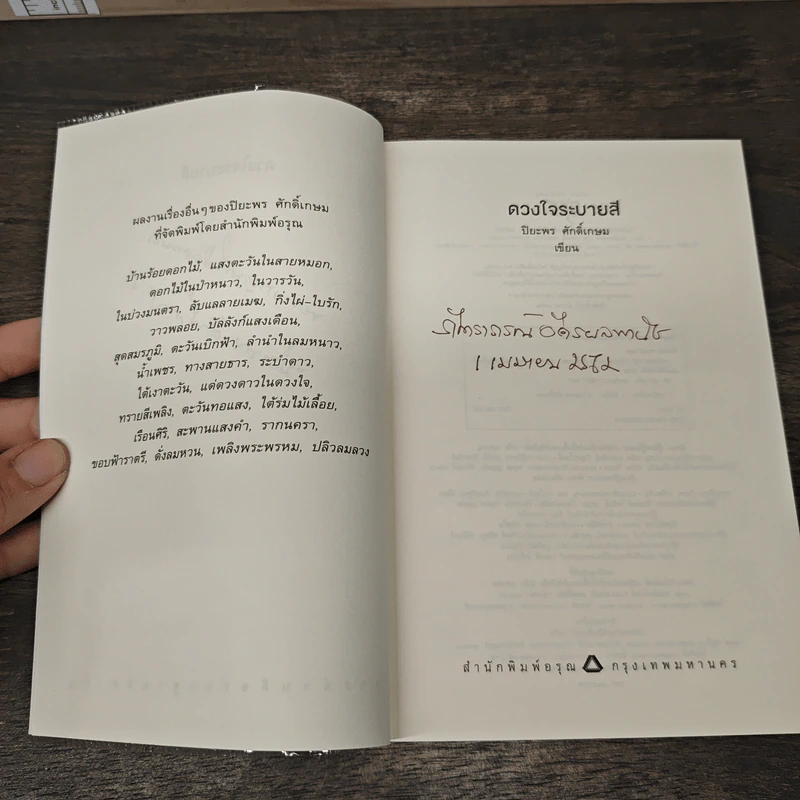 ผลงานเรื่องอื่นๆ ของปิยะพร ศักดิ์เกษม
ที่จัดพิมพ์โดยสำนักพิมพ์อรุณ
บ้านร้อยดอกไม้, แสงตะวันในสายหมอก,
ดอกไม้ในป่าหนาว, ในวารวัน,
ในบ่วงมนตรา, ลับแลลายเมฆ, กิ่งไผ่-ใบรัก,
วาวพลอย, บัลลังก์แสงเดือน,
สุดสมรภูมิ, ตะวันเบิกฟ้า, ลำนำในลมหนาว,
น้ำเพชร, ทางสายธาร, ระบำดาว,
ใต้เงาตะวัน, แด่ดวงดาวในดวงใจ,
ทรายสีเพลิง, ตะวันทอแสง, ใต้ร่มไม้เลื้อย,
เรือนศิริ, สะพานแสงคำ, รากนครา,
ขอบฟ้าราตรี, ดั่งลมหวน, เพลิงพระพรหม, ปลิวลมลวง
ดวงใจระบายสี
ปิยะพร ศักดิ์เกษม
เขียน
1 เมษายน
สำนักพิมพ์อรุณ กรุงเทพมหานคร